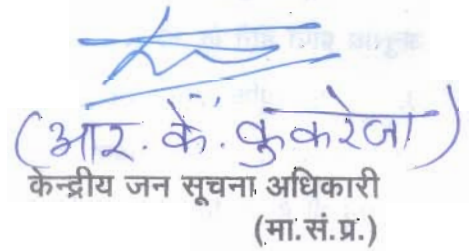 (आर. कें. कुकरेजा)
केन्द्रीय जन सूचना अधिकारी
(मा.सं.प्र.)